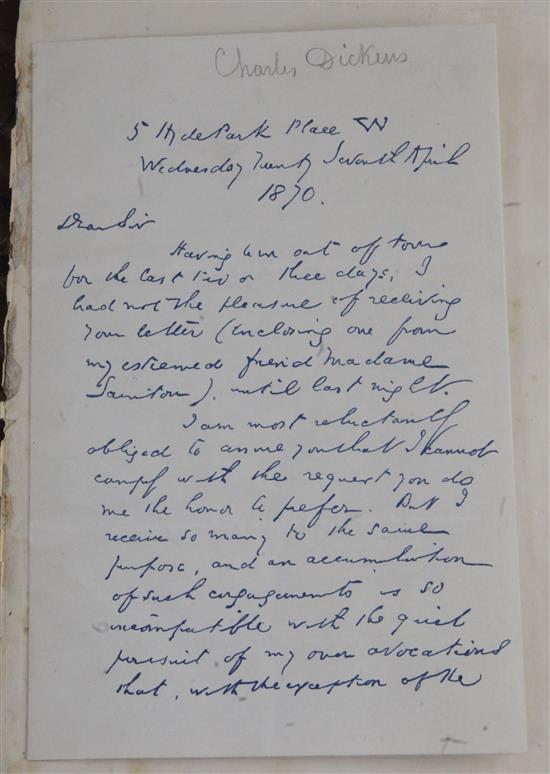 Charles Dickens
5 Hyde Park Place W
Wednesday Twenty Seventh April
1870.
Dear Sir
Having been out of town
for the last two or three days, I
had not the pleasure of receiving
your letter (enclosing one from
my esteemed friend Madame
Sainton), until last night.
I am most reluctantly
obliged to assure you that I cannot
comply with the request you do
me the honor to prefer. But I
receive so many to the same
purpose, and an accumulation
of such engagements is so
incompatible with the quiet
pursuit of my own avocations
that, with the exception of the